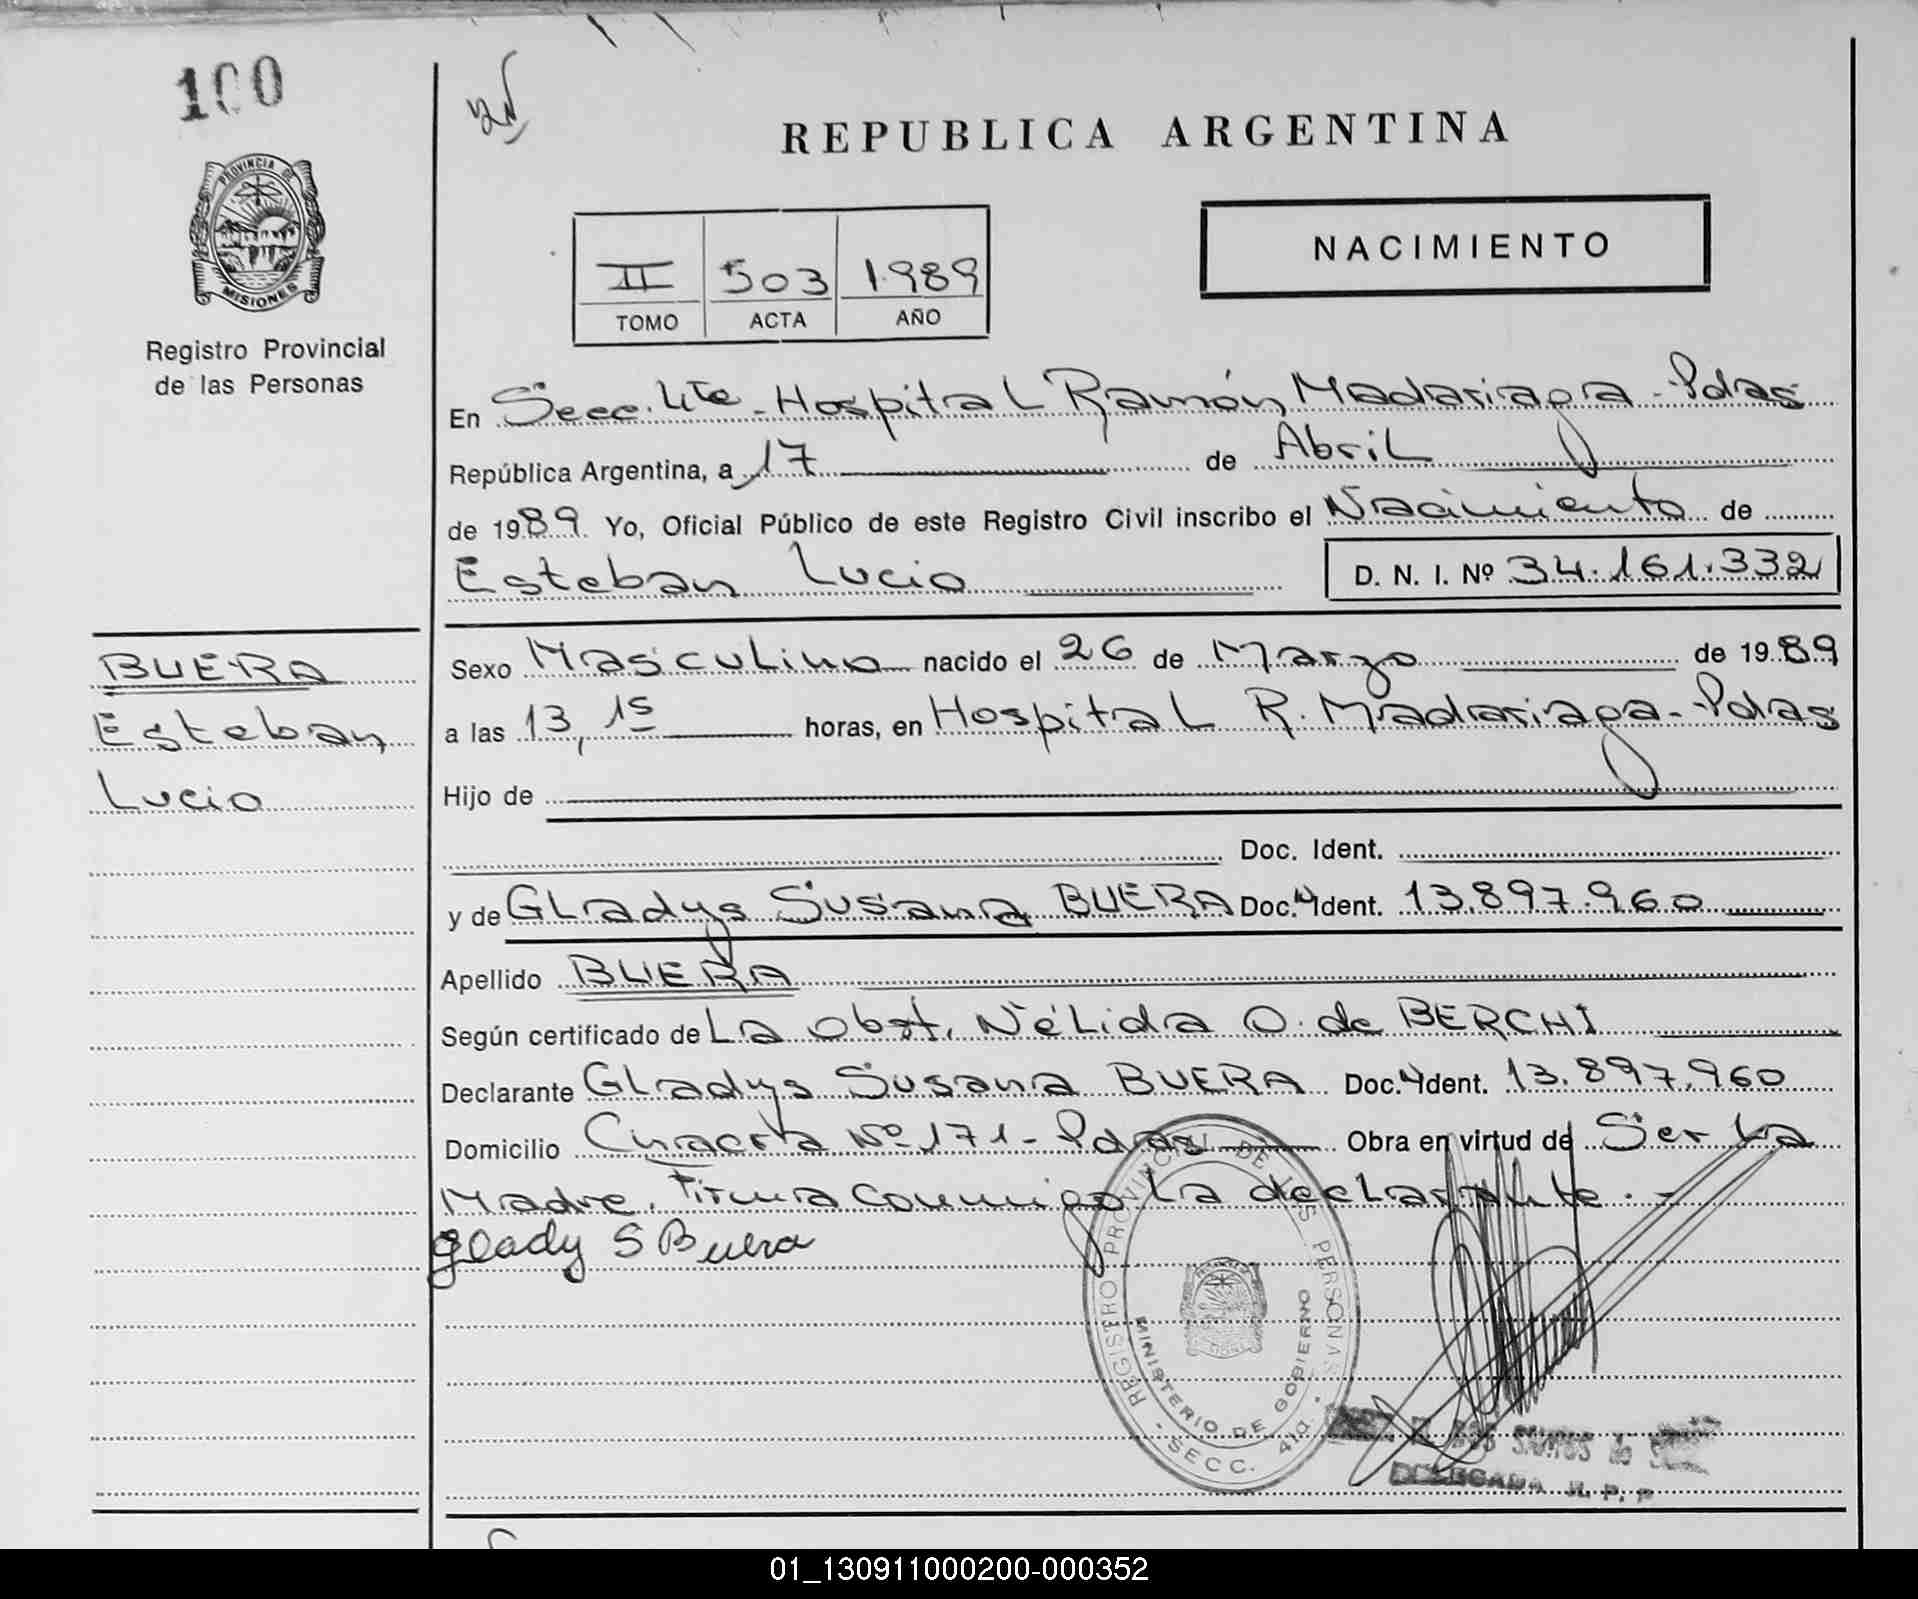 100
REPUBLICA ARGENTINA
PROVINCIA DE
MISIONES
NACIMIENTO
II 503 1.989
TOMO ACTA AÑO
Registro Provincial
de las Personas
En Secc. 4ta - Hospital Ramón Madariaga - Pdas
República Argentina, a 17 de Abril
de 1989. Yo, Oficial Público de este Registro Civil inscribo el Nacimiento de
Esteban Lucio D. N. I. Nº 34.161.332
BUERA
Esteban
Lucio
Sexo Masculino nacido el 26 de Marzo de 1989
a las 13,15 horas, en Hospital R. Madariaga - Pdas
Hijo de
Doc. Ident.
y de Gladys Susana BUERA Doc. Ident. 13.897.960
Apellido BUERA
Según certificado de La Obst. Nélida O. de BERCHI
Declarante Gladys Susana BUERA Doc. Ident. 13.897.960
Domicilio Nº 171 - Pdas Obra en virtud de Ser la
Madre. Firma conmigo la declarante.-
Glady S Buera
REGISTRO PROVINCIAL DE LAS PERSONAS
MINISTERIO DE GOBIERNO
SECC. 4ta.
DELEGADA R. P. P
01_130911000200-000352